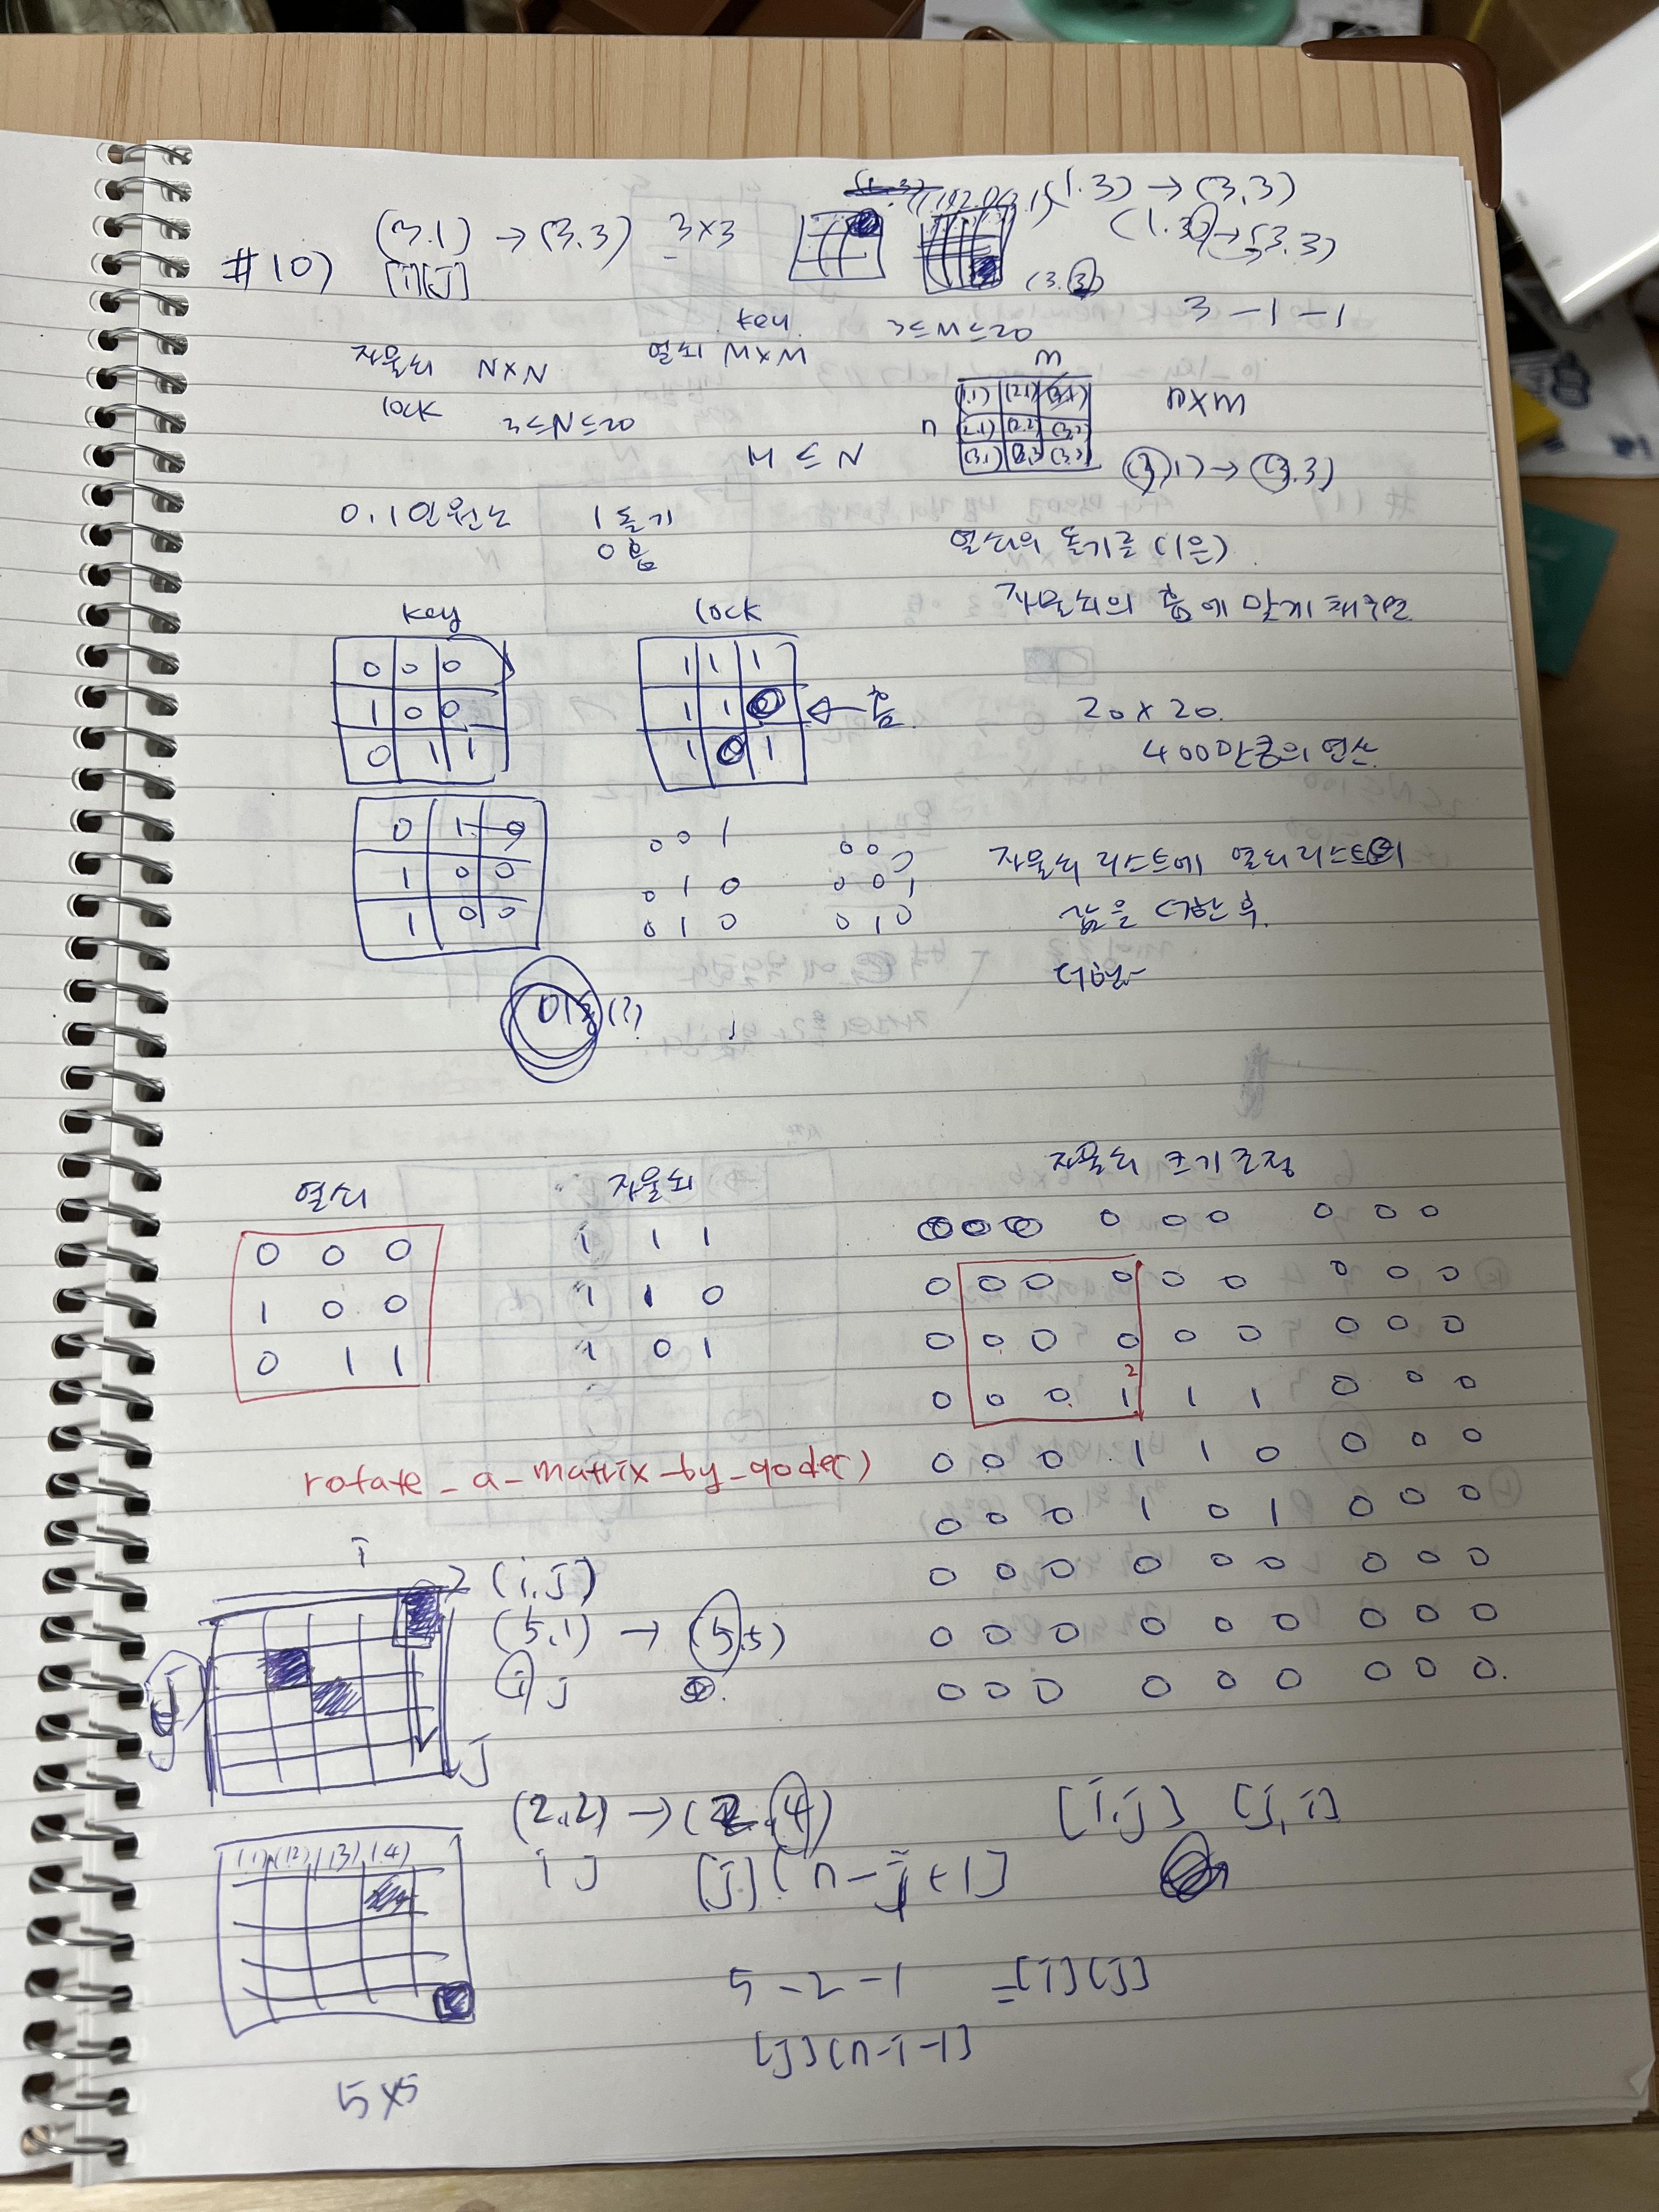 (1.3) → (3,3)
(3.1) → (3.3) 3×3
(1.3) → (3.3)
#10) [i][j]
(3.3)
3 - 1 - 1
key 3≤M≤20
자물쇠 N×N 열쇠 M×M
lock 3≤N≤20
M ≤ N
(3,1) → (3.3)
0,1인원소 1 돌기
0 홈
열쇠의 돌기를 (1은)
자물쇠의 홈에 맞게 채우면
key lock
0 0 0 1 1 1
1 0 0 1 1 0 ← 홈
0 1 1 1 0 1
20 × 20.
400만큼의 연산.
0 1 0 0 0 1 0 0 0
1 0 0 0 1 0 0 0 1
1 0 0 0 1 0 0 1 0
자물쇠 리스트에 열쇠 리스트의
값을 더한 후.
더한
이동(?)
열쇠 자물쇠 자물쇠 크기 조정
0 0 0 1 1 1 0 0 0 0 0 0 0 0 0
1 0 0 1 1 0 0 0 0 0 0 0 0 0 0
0 1 1 1 0 1 0 0 0 0 0 0 0 0 0
2
0 0 0 1 1 1 0 0 0
0 0 0 1 1 0 0 0 0
0 0 0 1 0 1 0 0 0
0 0 0 0 0 0 0 0 0
0 0 0 0 0 0 0 0 0
0 0 0 0 0 0 0 0 0.
i
(i,j)
(5,1) → (5,5)
i j
j
j
(2,2) → (2,4) [i,j] [j,i]
i j [j][n-j+1]
(1.1) (1.2) (1.3) (1.4)
5 - 2 - 1 =[i][j]
[j][n-i-1]
5×5